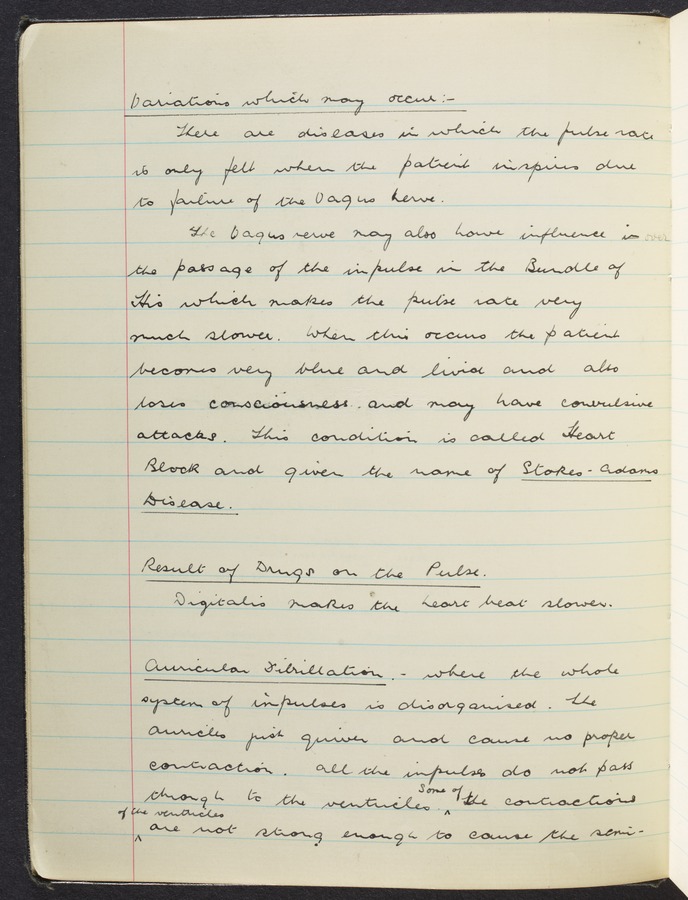 Variations which may occur:-
There are diseases in which the pulse rate
is only felt when the patient inspires due
to failure of the Vagus nerve.
The Vagus nerve may also have influence in over
the passage of the impulse in the Bundle of
His which makes the pulse rate very
much slower. When this occurs the patient
becomes very blue and livid and also
loses consciousness and may have convulsive
attacks. This condition is called Heart
Block and given the name of Stokes-Adams
Disease.
Result of Drugs on the Pulse.
Digitalis makes the heart beat slower.
Auricular Fibrillation.- where the whole
system of impulses is disorganised. The
auricles just quiver and cause no proper
contraction. All the impulses do not pass
through to the ventricles. Some of the contractions
of the ventricles
are not strong enough to cause the semi-